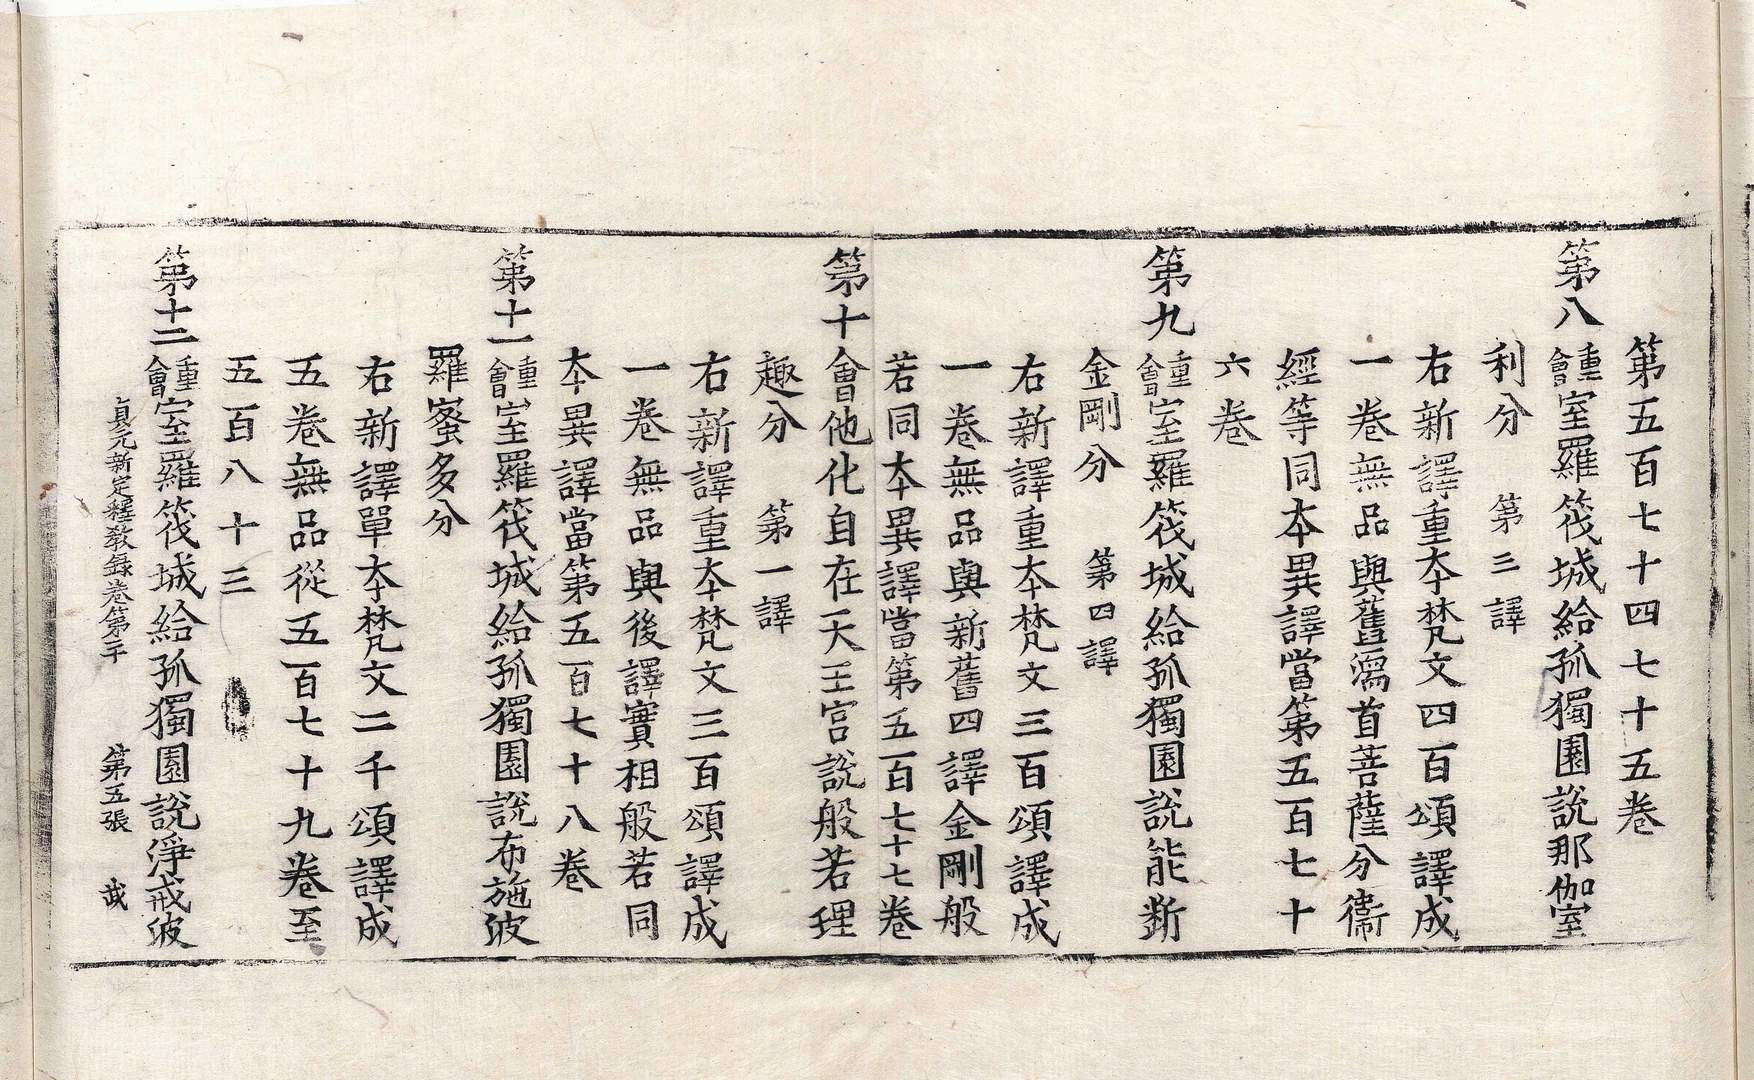 第五百七十四七十五卷
第八重會室羅筏城給孤獨園說那伽室
利分　第三譯
右新譯重夲梵文四百頌譯成
一卷無品與舊濡首菩薩分衞
經等同夲異譯當第五百七十
六卷
第九重會室羅筏城給孤獨園說能斷
金剛分　第四譯
右新譯重夲梵文三百頌譯成
一卷無品與新舊四譯金剛般
若同夲異譯當第五百七十七卷
第十會他化自在天王宮說般若理
趣分　第一譯
右新譯重夲梵文三百頌譯成
一卷無品與後譯實相般若同
夲異譯當第五百七十八卷
第十一重會室羅筏城給孤獨園說布施波
羅蜜多分
右新譯單夲梵文二千頌譯成
五卷無品從五百七十九卷至
五百八十三
第十二重會室羅筏城給孤獨園說淨戒波
貞元新定釋教錄卷第二十　第五張　武